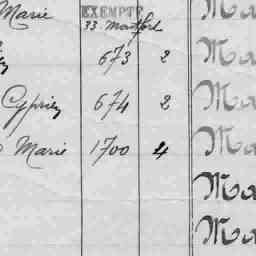 Marie EXEMPTE Ma
33. Montfort
673 2 Ma
Cyprien 674 2 Ma
Marie 1700 4 Ma
Ma
Ma